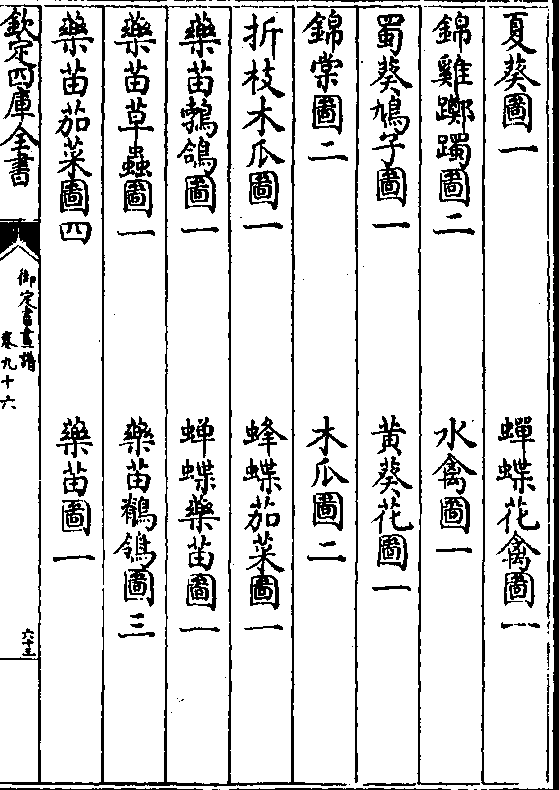 夏葵圖一　蟬蝶花禽圖一
錦雞躑躅圖二　水禽圖一
蜀葵鳩子圖一　黄葵花圖一
錦棠圖二　木瓜圖二
折枝木瓜圖一　蜂蝶茄菜圖一
藥苗鵓鴿圖一　蝉蝶藥苗圖一
藥苗草蟲圖一　藥苗鶺鴒圖三
藥苗茄菜圖四　藥苗圖一
欽定四庫全書
御定書畫譜
卷九十六
六十三